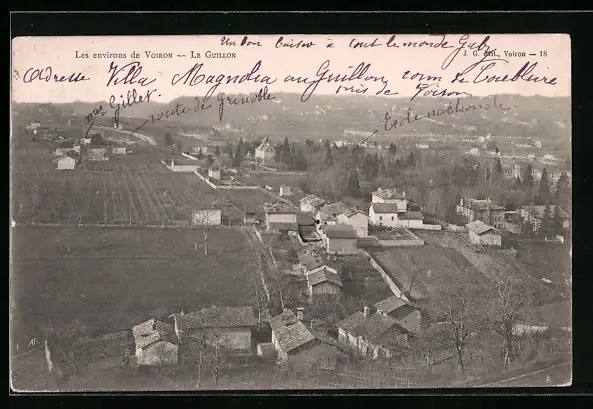 Les environs de VOIRON — LE GUILLON
J. G. édit., Voiron — 18
Un bon baiser à tout le monde Gaby
Adresse Villa Magnolia au Guillon
près de Voiron
Mme Gillet route de grenoble
École nationale